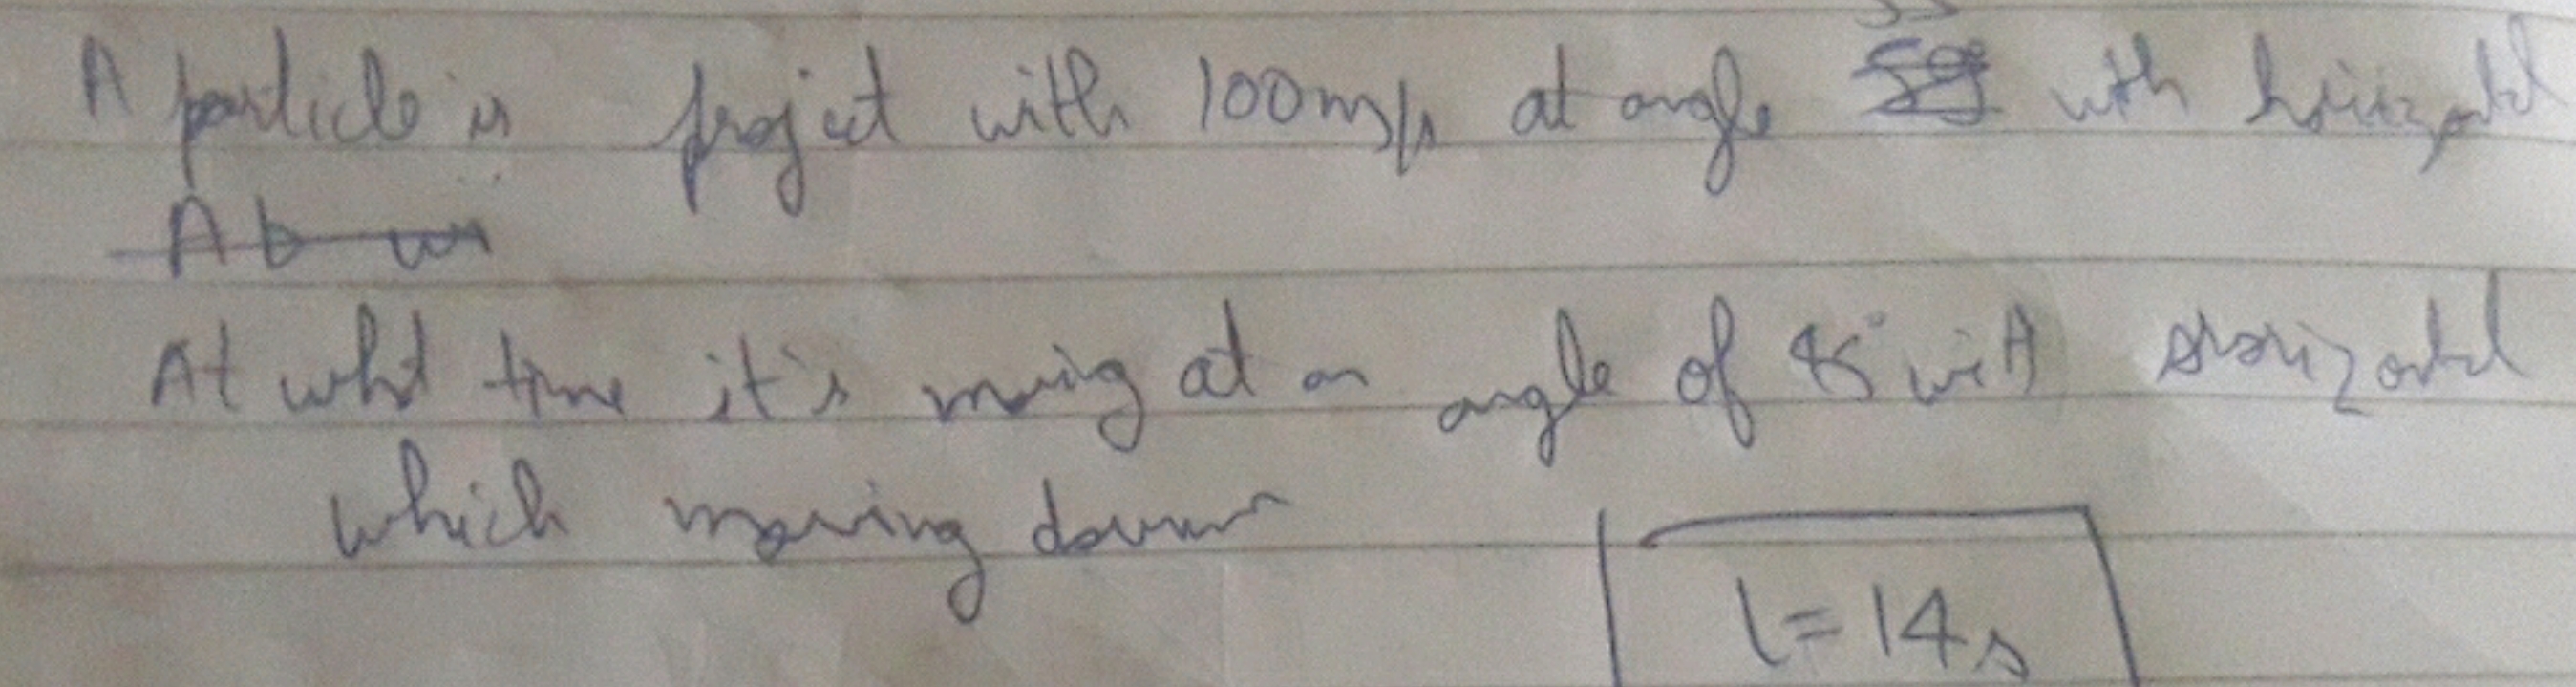 A particle is project with 100m/s at angle with horizontal
At what time it's moving at an angle of 45° with horizontal
which moving down
t=14s